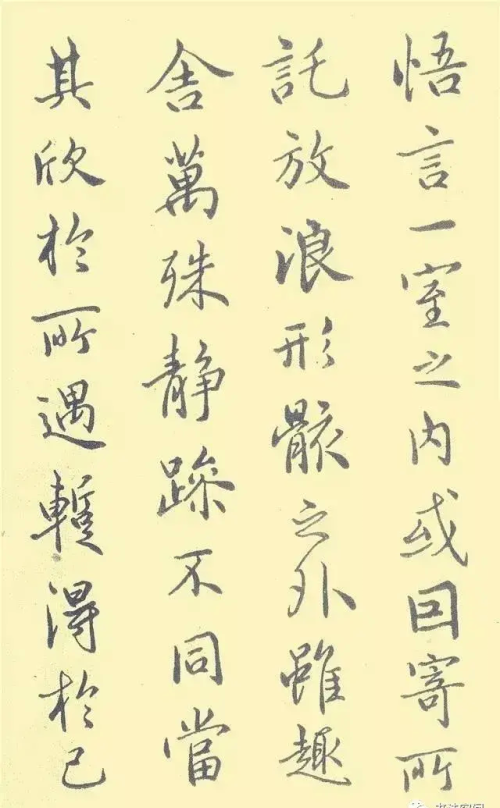 悟言一室之内或因寄所
託放浪形骸之外雖趣
舍萬殊静躁不同當
其欣於所遇蹔得於己